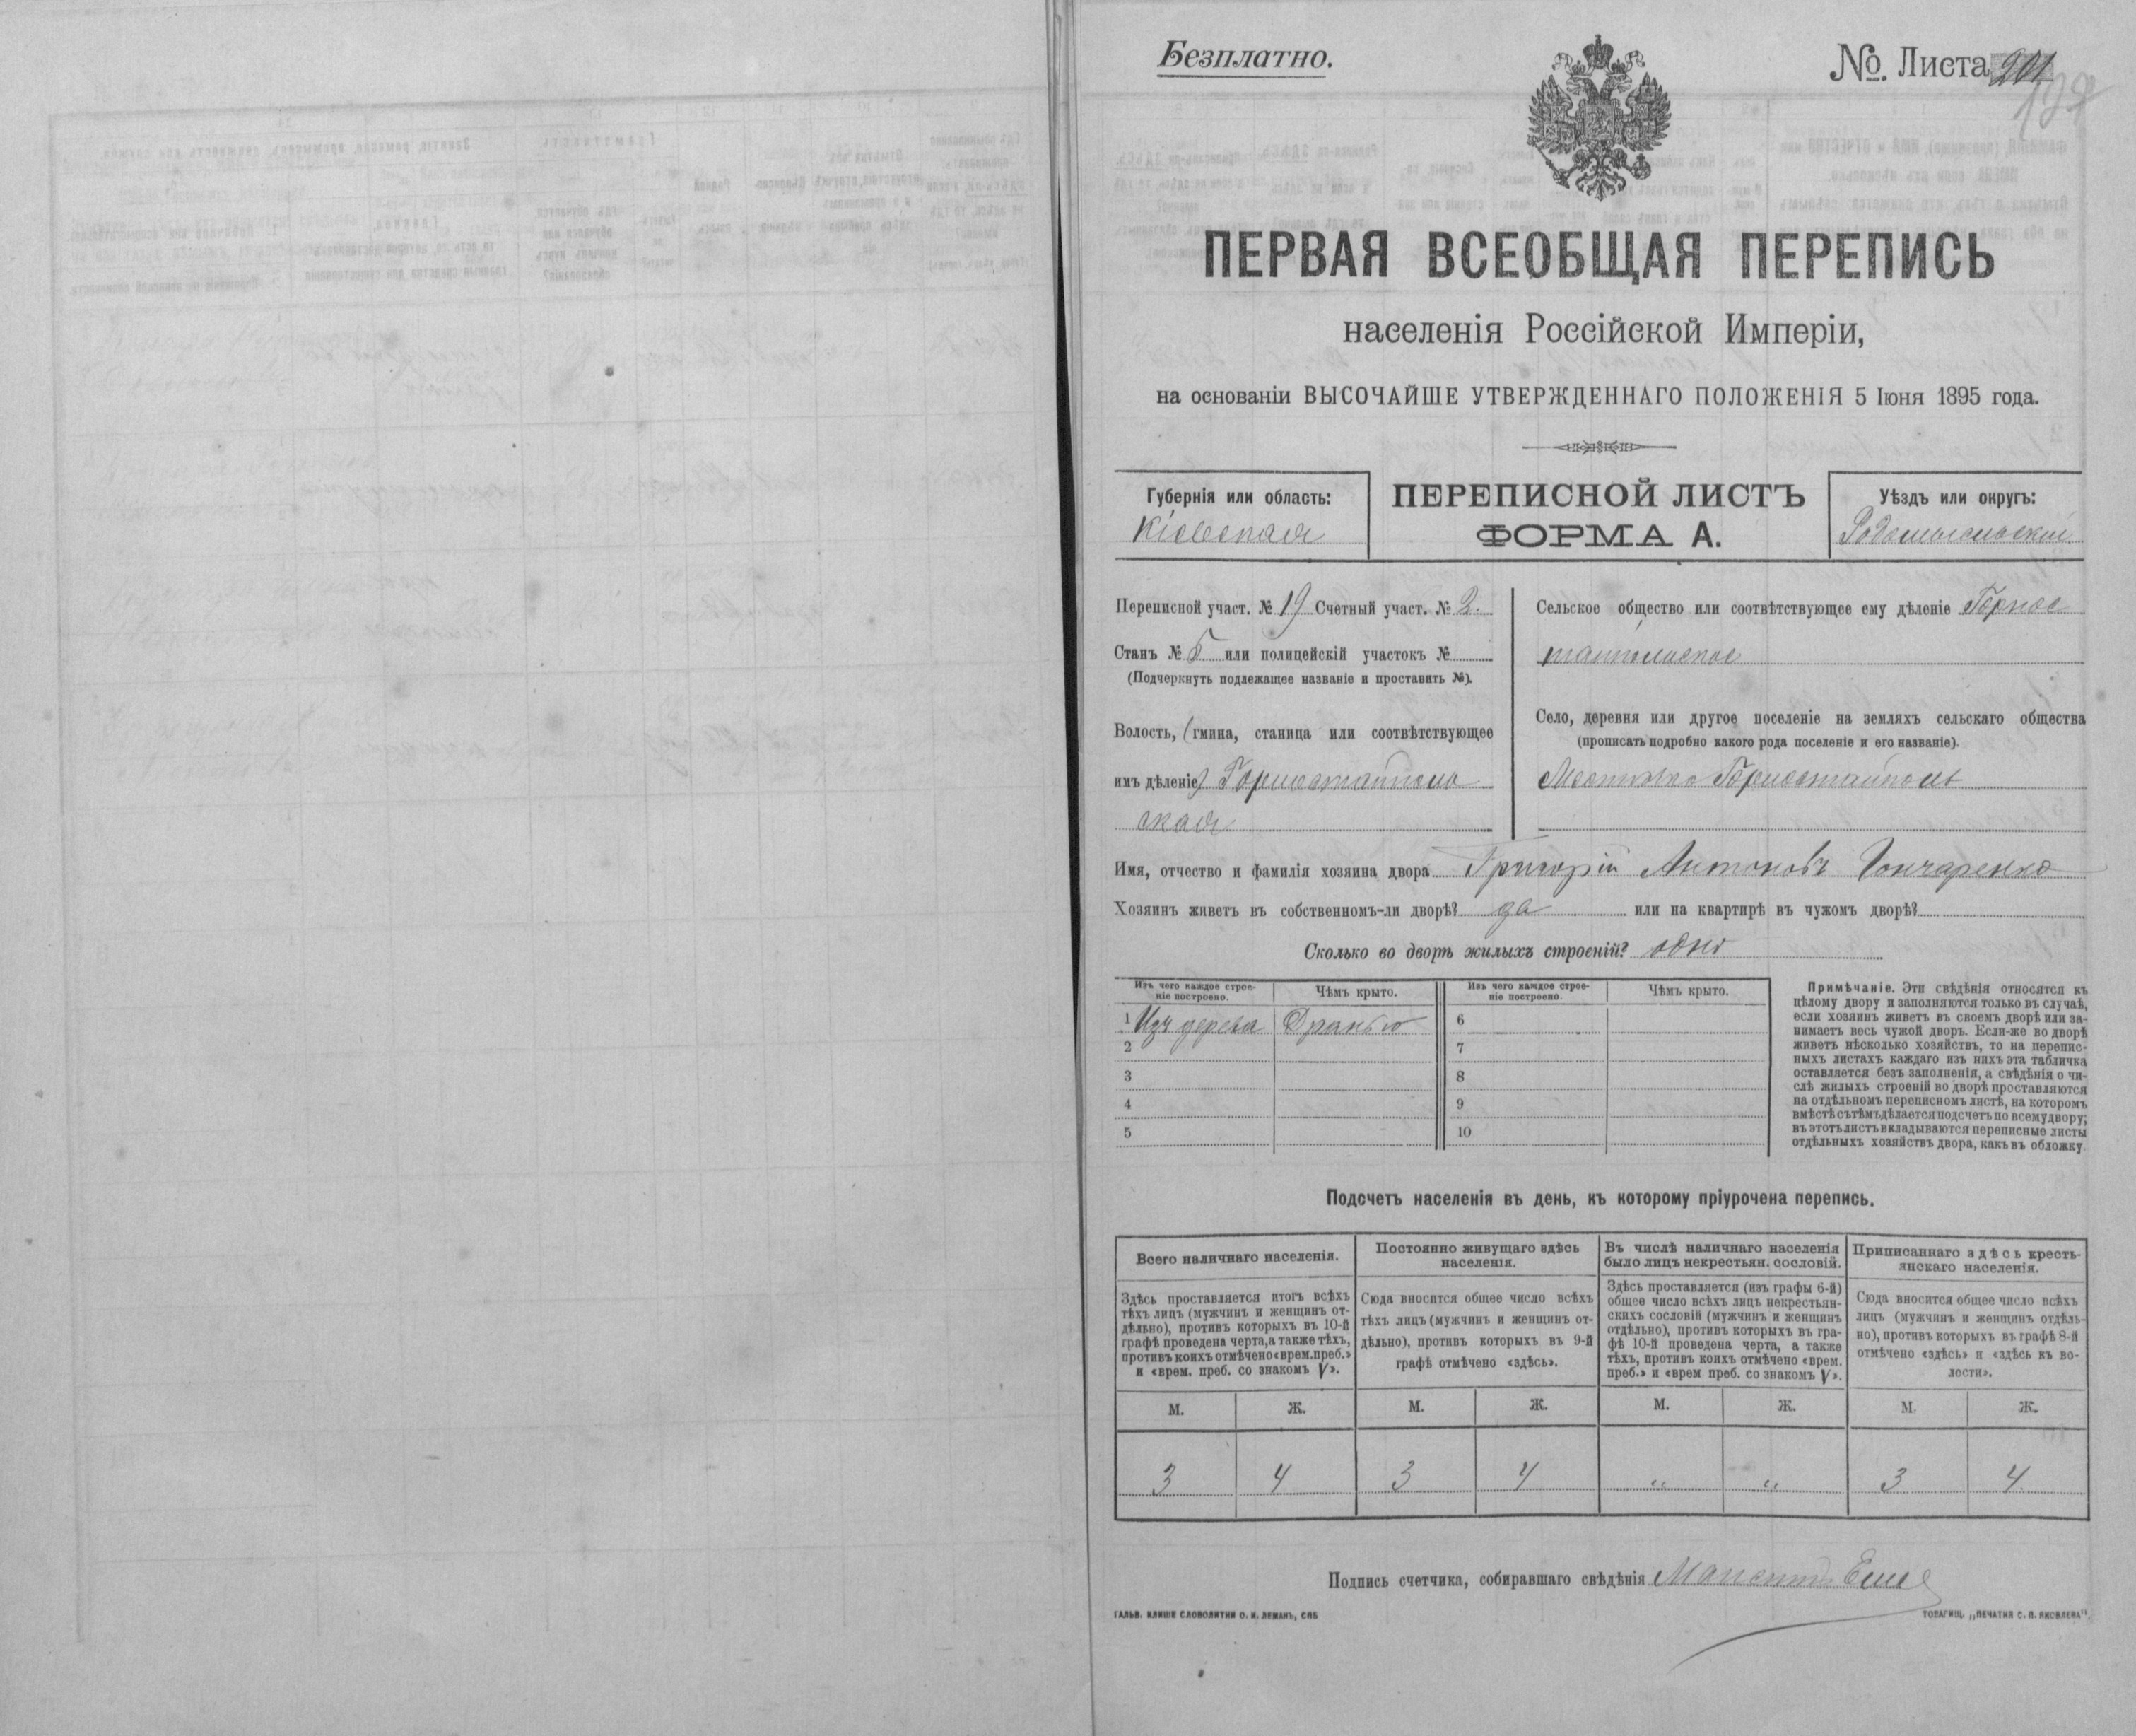 Безплатно.
№ Листа 201
ПЕРВАЯ ВСЕОБЩАЯ ПЕРЕПИСЬ
населенія Россійской Имперіи,
на основаніи ВЫСОЧАЙШЕ УТВЕРЖДЕННАГО ПОЛОЖЕНІЯ 5 Іюня 1895 года.
Губернія или область:
Кіевская
ПЕРЕПИСНОЙ ЛИСТЪ
ФОРМА А.
Уѣздъ или округъ:
Радомысльскій
Переписной участ. № 19 Счетный участ. № 2.
Станъ № 5 или полицейскій участокъ №
(Подчеркнуть подлежащее названіе и проставить №).
Волость, (гмина, станица или соотвѣтствующее
имъ дѣленіе) Горностайполь
ская
Сельское общество или соотвѣтствующее ему дѣленіе Горнос
тайпольское
Село, деревня или другое поселеніе на земляхъ сельскаго общества
(прописать подробно какого рода поселеніе и его названіе).
Местечко Горностайполь
Имя, отчество и фамилія хозяина двора Григорій Антоновъ Гончаренко
Хозяинъ живетъ въ собственномъ-ли дворѣ? да или на квартирѣ въ чужомъ дворѣ?
Сколько во дворѣ жилыхъ строеній? одно
Изъ чего каждое строе-
ніе построено.
Чѣмъ крыто.
Изъ чего каждое строе-
ніе построено.
Чѣмъ крыто.
1 Изъ дерева Дранью 6
2 7
3 8
4 9
5 10
Примѣчаніе. Эти свѣдѣнія относятся къ
цѣлому двору и заполняются только въ случаѣ,
если хозяинъ живетъ въ своемъ дворѣ или за-
нимаетъ весь чужой дворъ. Если-же во дворѣ
живетъ нѣсколько хозяйствъ, то на перепис-
ныхъ листахъ каждаго изъ нихъ эта табличка
оставляется безъ заполненія, а свѣдѣнія о чи-
слѣ жилыхъ строеній во дворѣ проставляются
на отдѣльномъ переписномъ листѣ, на которомъ
вмѣстѣ съ тѣмъ дѣлается подсчетъ по всему двору;
въ этотъ листъ вкладываются переписные листы
отдѣльныхъ хозяйствъ двора, какъ въ обложку.
Подсчетъ населенія въ день, къ которому пріурочена перепись.
Всего наличнаго населенія.
Здѣсь проставляется итогъ всѣхъ
тѣхъ лицъ (мужчинъ и женщинъ от-
дѣльно), противъ которыхъ въ 10-й
графѣ проведена черта, а также тѣхъ,
противъ коихъ отмѣчено «врем. преб.»
и «врем. преб. со знакомъ V».
Постоянно живущаго здѣсь
населенія.
Сюда вносится общее число всѣхъ
тѣхъ лицъ (мужчинъ и женщинъ от-
дѣльно), противъ которыхъ въ 9-й
графѣ отмѣчено «здѣсь».
Въ числѣ наличнаго населенія
было лицъ некрестьян. сословій.
Здѣсь проставляется (изъ графы 6-й)
общее число всѣхъ лицъ некрестьян-
скихъ сословій (мужчинъ и женщинъ
отдѣльно), противъ которыхъ въ гра-
фѣ 10-й проведена черта, а также
тѣхъ, противъ коихъ отмѣчено «врем.
преб.» и «врем преб. со знакомъ V».
Приписаннаго здѣсь кресть-
янскаго населенія.
Сюда вносится общее число всѣхъ
лицъ (мужчинъ и женщинъ отдѣль-
но), противъ которыхъ въ графѣ 8-й
отмѣчено «здѣсь» и «здѣсь къ во-
лости».
М. Ж. М. Ж. М. Ж. М. Ж.
3 4 3 4 „ „ 3 4
Подпись счетчика, собиравшаго свѣдѣнія
ГАЛЬВ. КЛИШЕ СЛОВОЛИТНИ О. И. ЛЕМАНЪ, СПБ
ТОВАРИЩ. „ПЕЧАТНЯ С. П. ЯКОВЛЕВА".